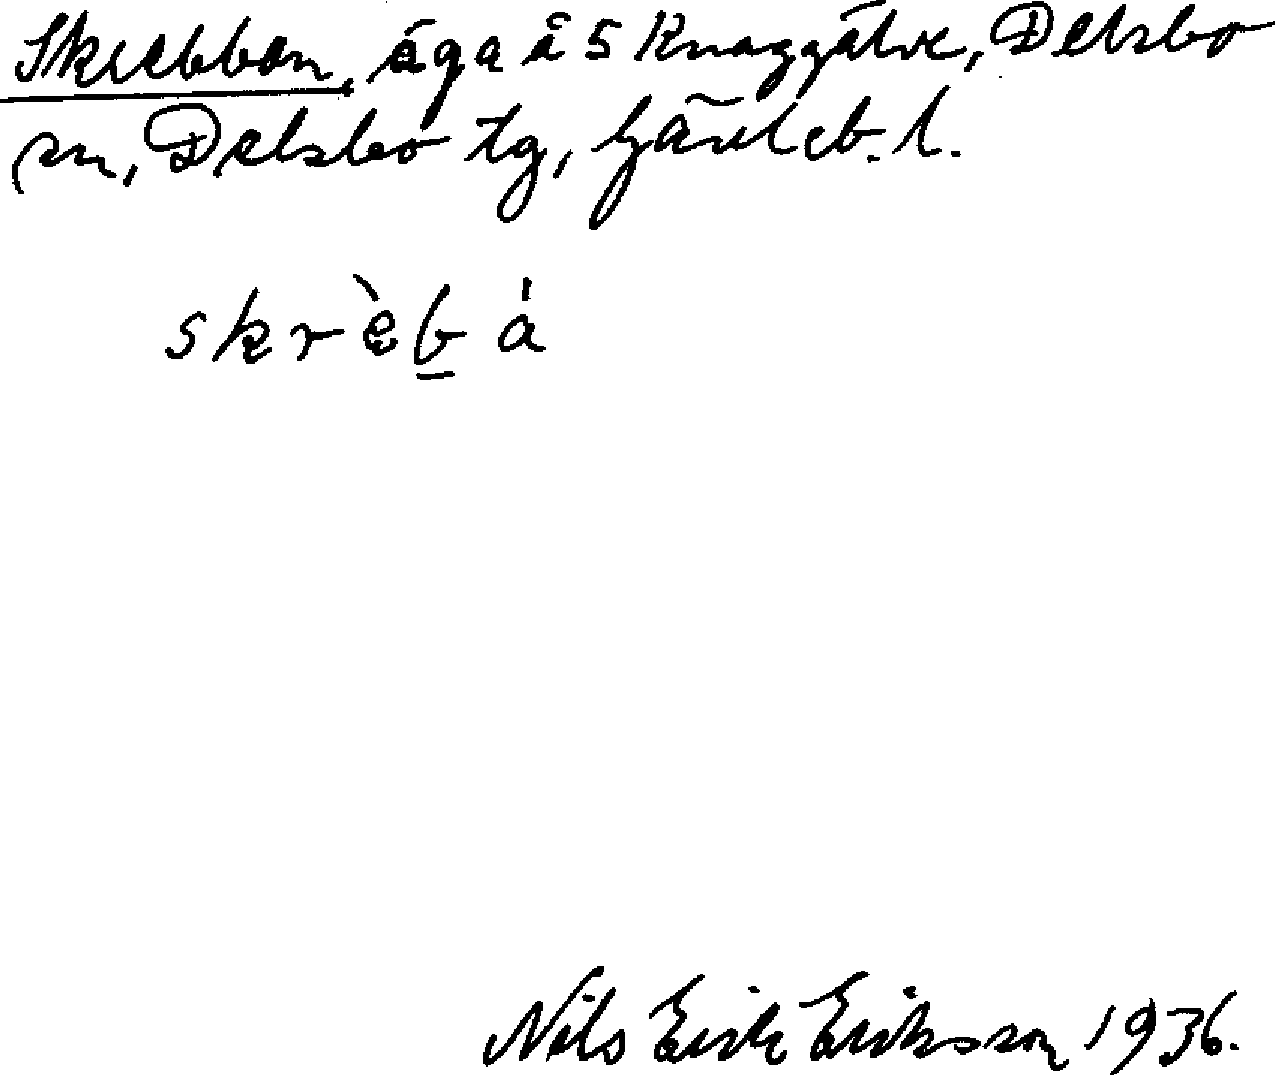 Skrebban, äga å 5 Knaggälve, Delsbo
sn, Delsbo tg, Gävleb. l.
skrὲb̲ á
Nils Erik Eriksson 1936.